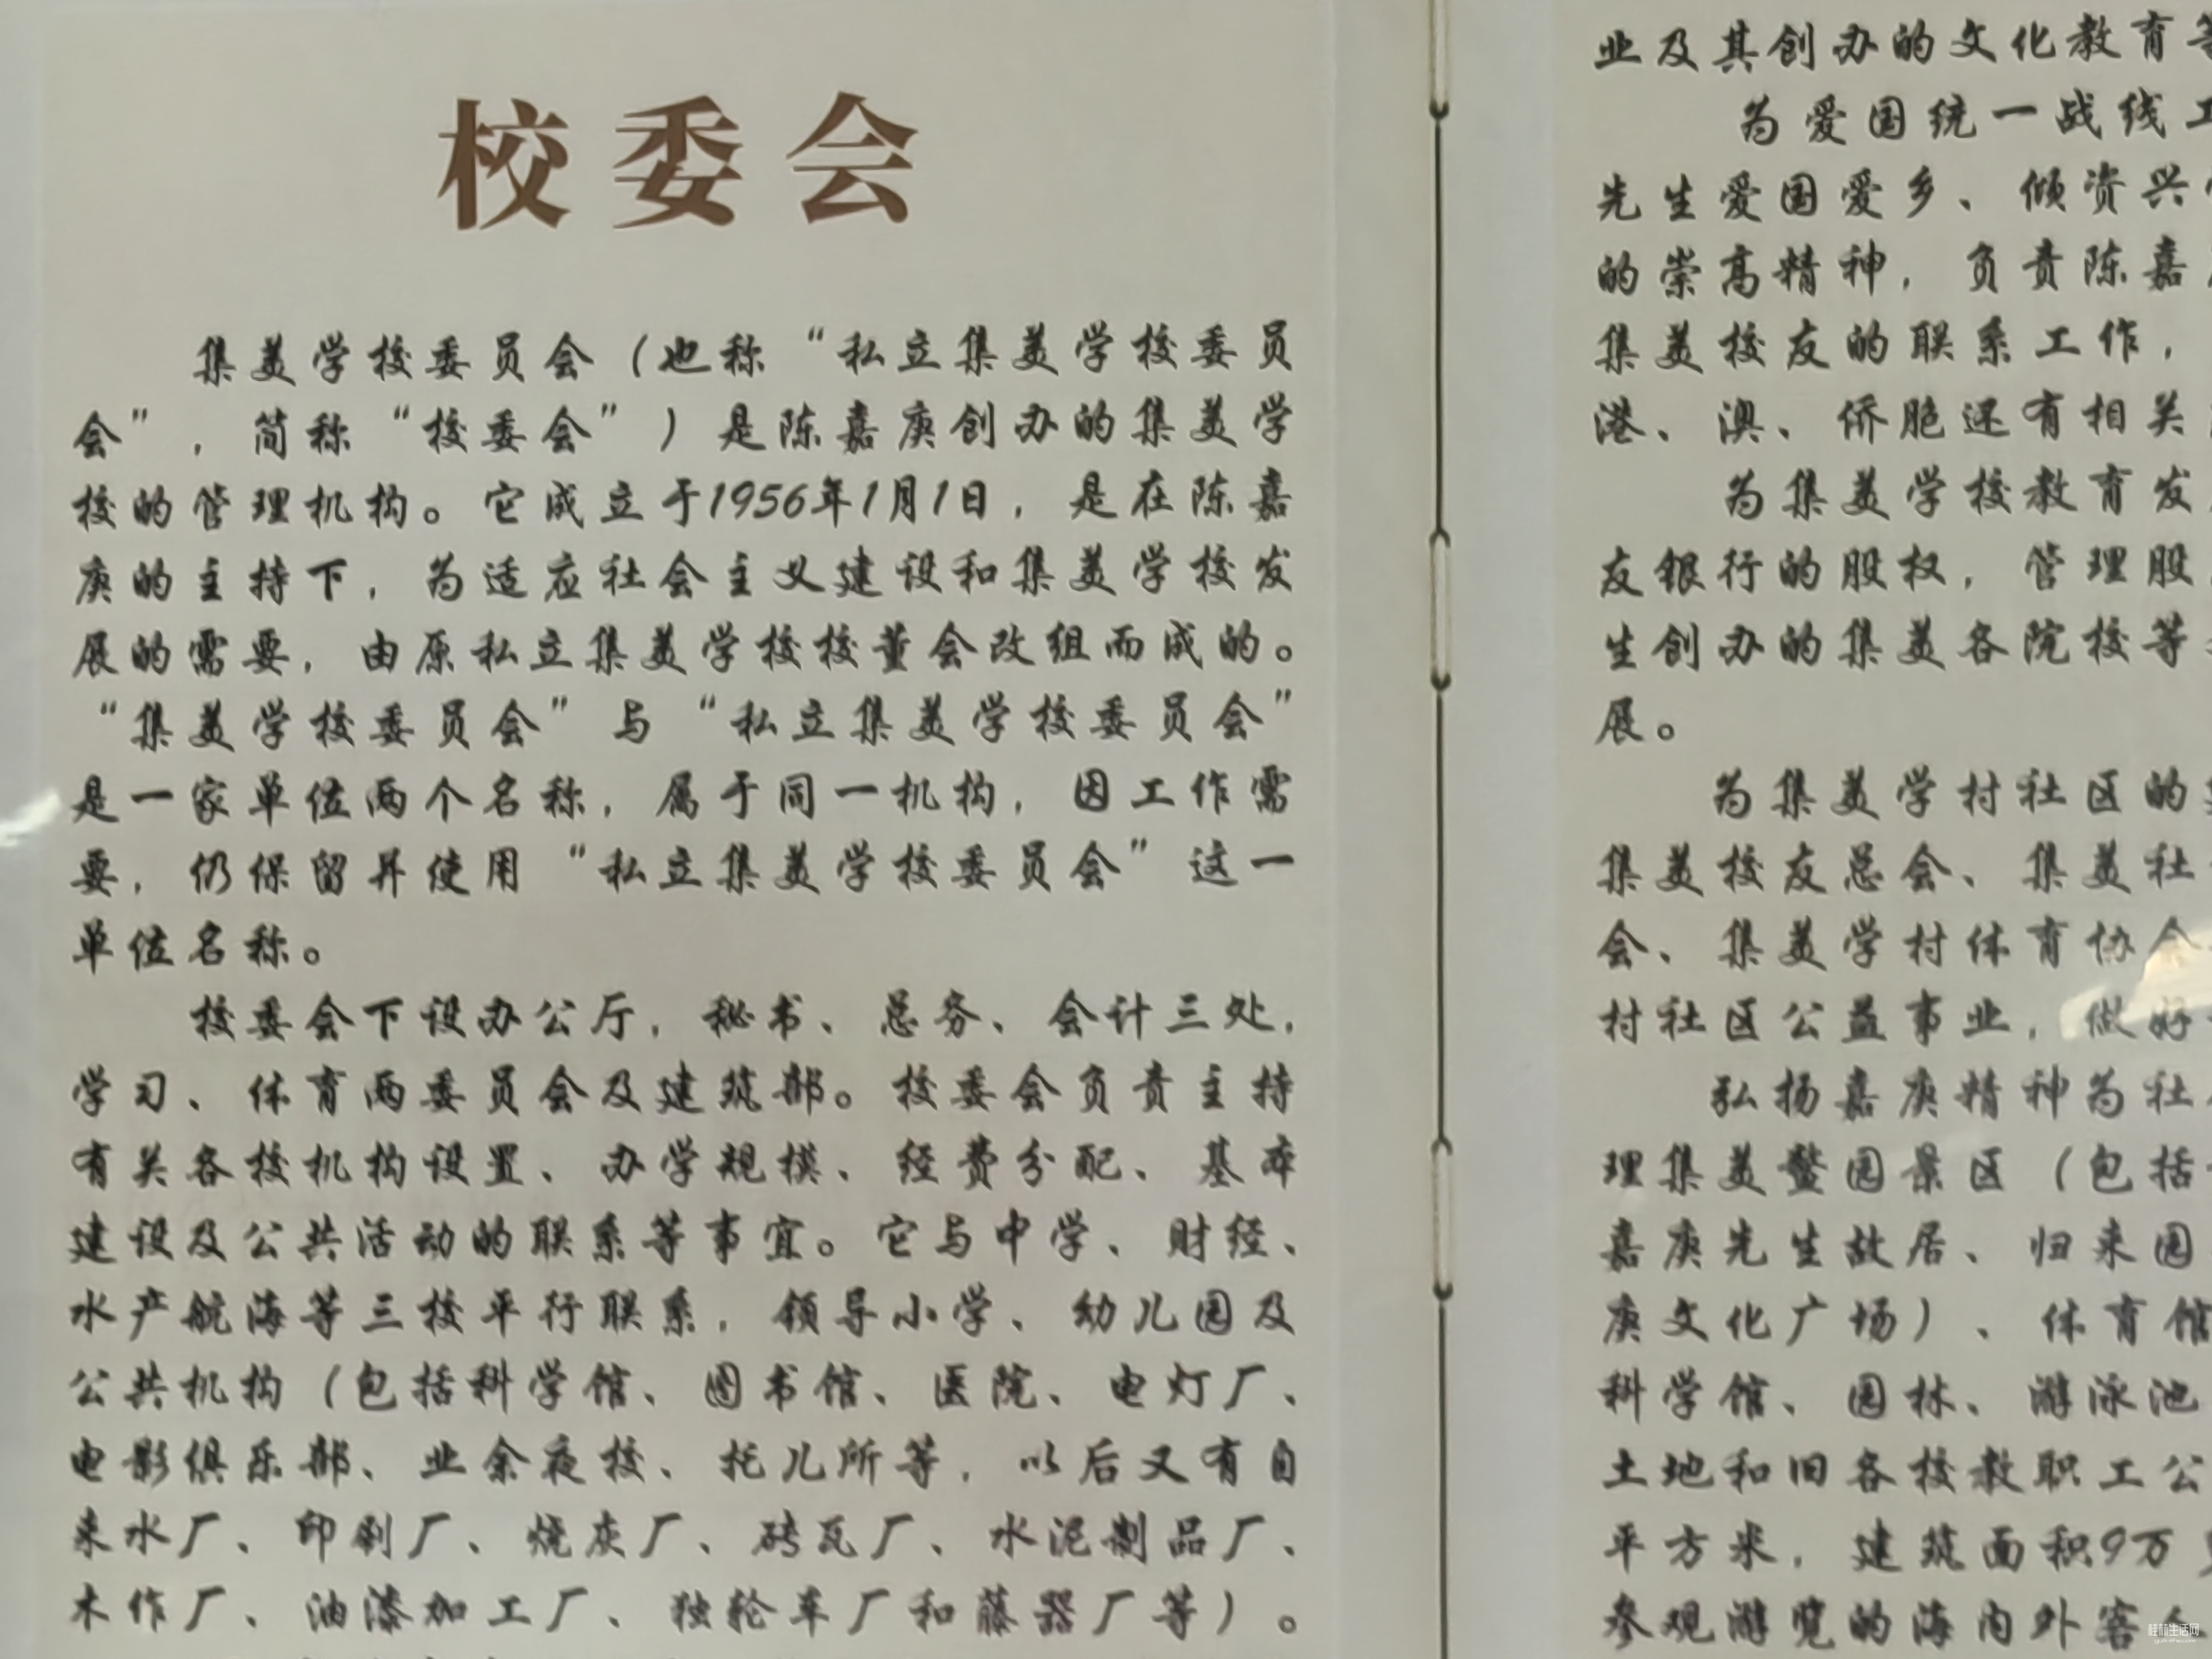 校委会
集美学校委员会（也称“私立集美学校委员
会”，简称“校委会”）是陈嘉庚创办的集美学
校的管理机构。它成立于1956年1月1日，是在陈嘉
庚的主持下，为适应社会主义建设和集美学校发
展的需要，由原私立集美学校校董会改组而成的。
“集美学校委员会”与“私立集美学校委员会”
是一家单位两个名称，属于同一机构，因工作需
要，仍保留并使用“私立集美学校委员会”这一
单位名称。
校委会下设办公厅，秘书、总务、会计三处，
学习、体育两委员会及建筑部。校委会负责主持
有关各校机构设置、办学规模、经费分配、基本
建设及公共活动的联系等事宜。它与中学、财经、
水产航海等三校平行联系，领导小学、幼儿园及
公共机构（包括科学馆、图书馆、医院、电灯厂、
电影俱乐部、业余夜校、托儿所等，以后又有自
来水厂、印刷厂、烧灰厂、砖瓦厂、水泥制品厂、
木作厂、油漆加工厂、独轮车厂和藤器厂等）。
业及其创办的文化教育等
为爱国统一战线工
先生爱国爱乡、倾资兴
的崇高精神，负责陈嘉
集美校友的联系工作，
港、澳、侨胞还有相关
为集美学校教育发
友银行的股权，管理股
生创办的集美各院校等
展。
为集美学村社区的
集美校友总会、集美社
会、集美学村体育协会
村社区公益事业，做好
弘扬嘉庚精神为社
理集美鳌园景区（包括
嘉庚先生故居、归来园
庚文化广场）、体育馆
科学馆、园林、游泳池
土地和旧各校教职工公
平方米，建筑面积9万
参观游览的海内外客人
桂林生活网